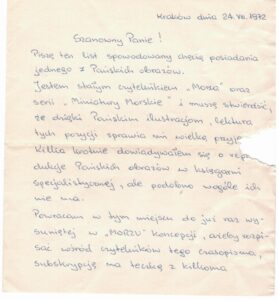 Kraków dnia 24.VII.1972
Szanowny Panie!
Piszę ten list spowodowany chęcią posiadania
jednego z Pańskich obrazów.
Jestem stałym czytelnikiem „Morza" oraz
serii „Miniatury Morskie" i muszę stwierdzić,
że dzięki Pańskim ilustracjom, lektura
tych pozycji sprawia mi wielką przyje
Kilka krotnie dowiadywałem się o repro
dukcje Pańskich obrazów w księgarni
specjalistycznej, ale podobno wogóle ich
nie ma.
Powracam w tym miejscu do już raz wy-
suniętej w „MORZU" koncepcji, ażeby rozpi-
sać wśród czytelników tego czasopisma,
subskrypcję na teczkę z kilkoma